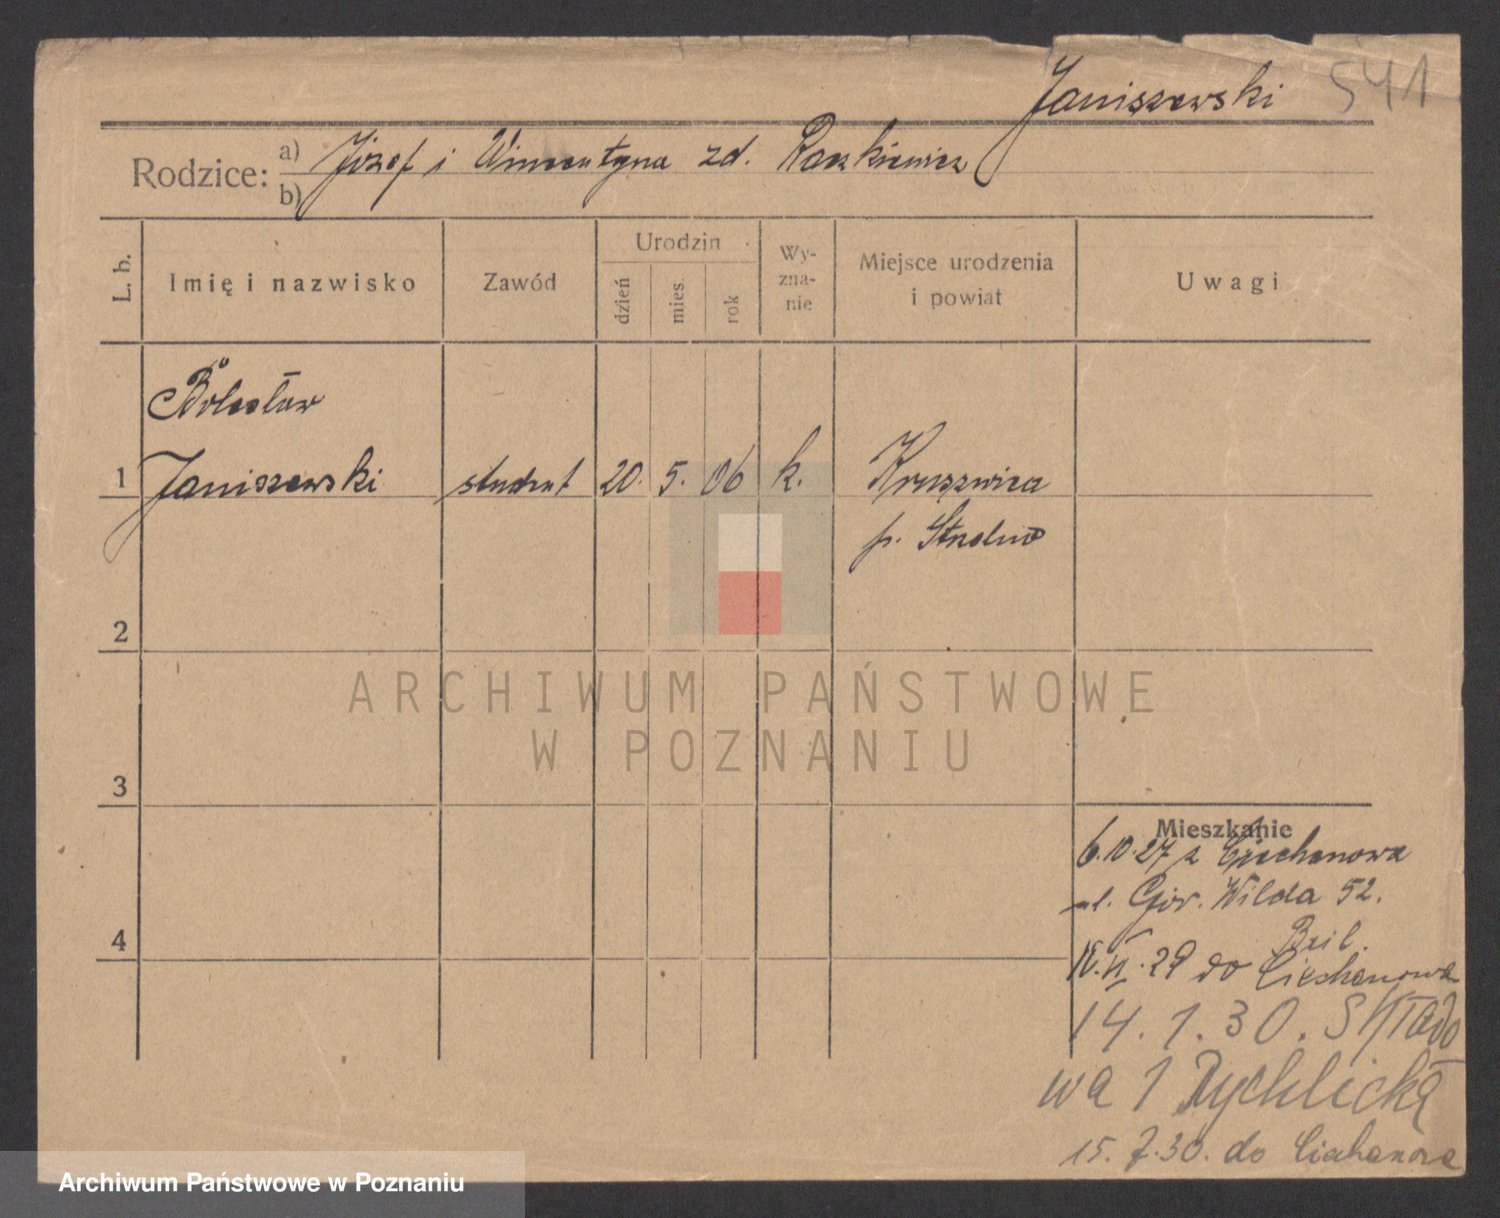 Janiszewski 541
Rodzice: a) Józef i Wincentyna zd. Raszkiewicz
b)
L. b.
Imię i nazwisko
Zawód
Urodzin
dzień
mies.
rok
Wy-
zna-
nie
Miejsce urodzenia
i powiat
Uwagi
Bolesław
1 Janiszewski student 20. 5. 06 k. Kruszwica
p. Strzelno
2
3
4
Mieszkanie
6.10.27 z Ciechanowa
ul. Gór. Wilda 52.
29 do Ciechanowa
14.1.30. Składo
wa 1 Rychlicka
15.7.30. do Ciechanowa
ARCHIWUM PAŃSTWOWE
W POZNANIU
Archiwum Państwowe w Poznaniu